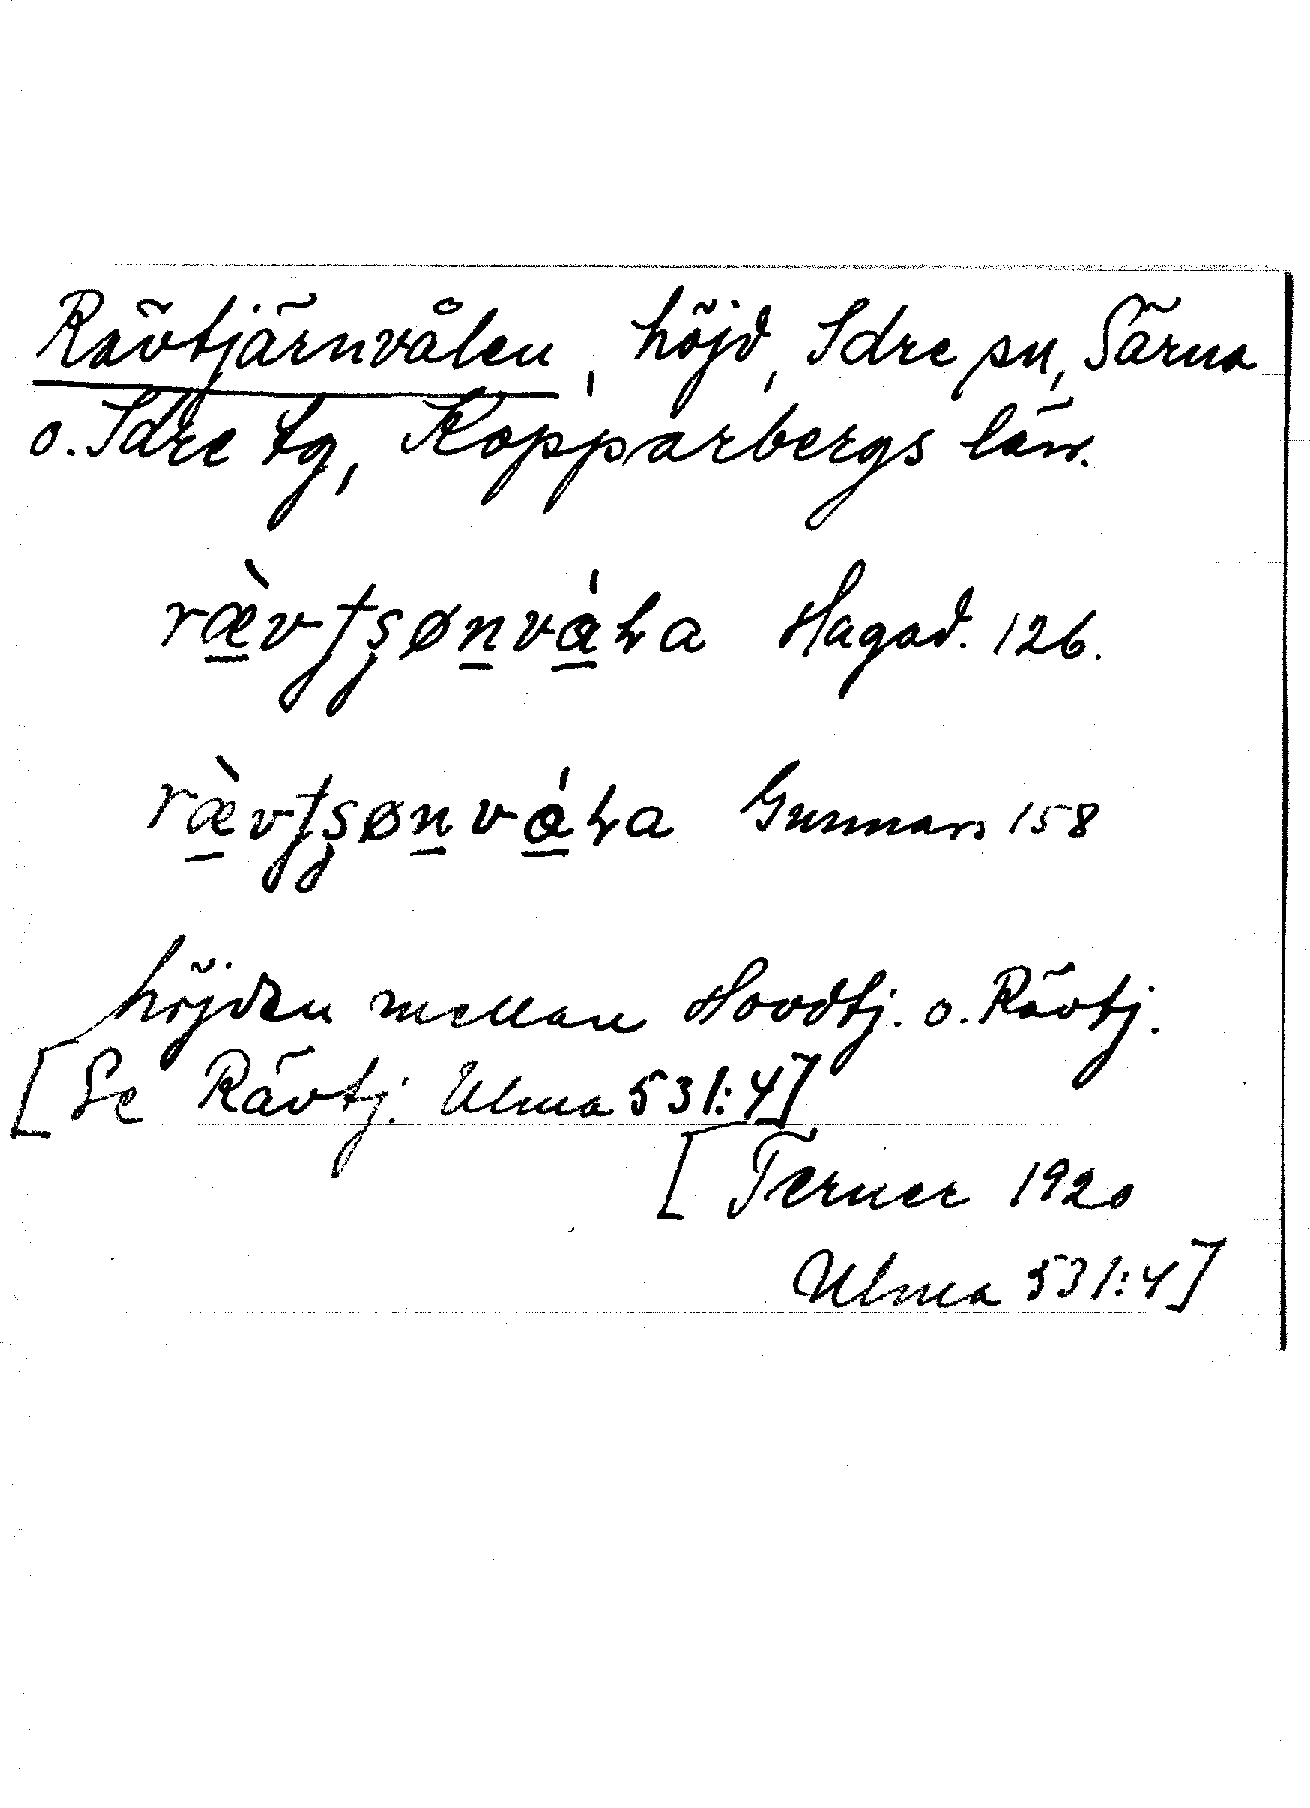 Rävtjärnvålen, höjd, Idre sn, Särna
o. Idre tg, Kopparbergs län.
Hagad. 126.
Gunnars 158
höjden mellan Hovdtj. o. Rävtj.
[Se Rävtj. Ulma 531:4]
[Terner 1920
Ulma 531:4]